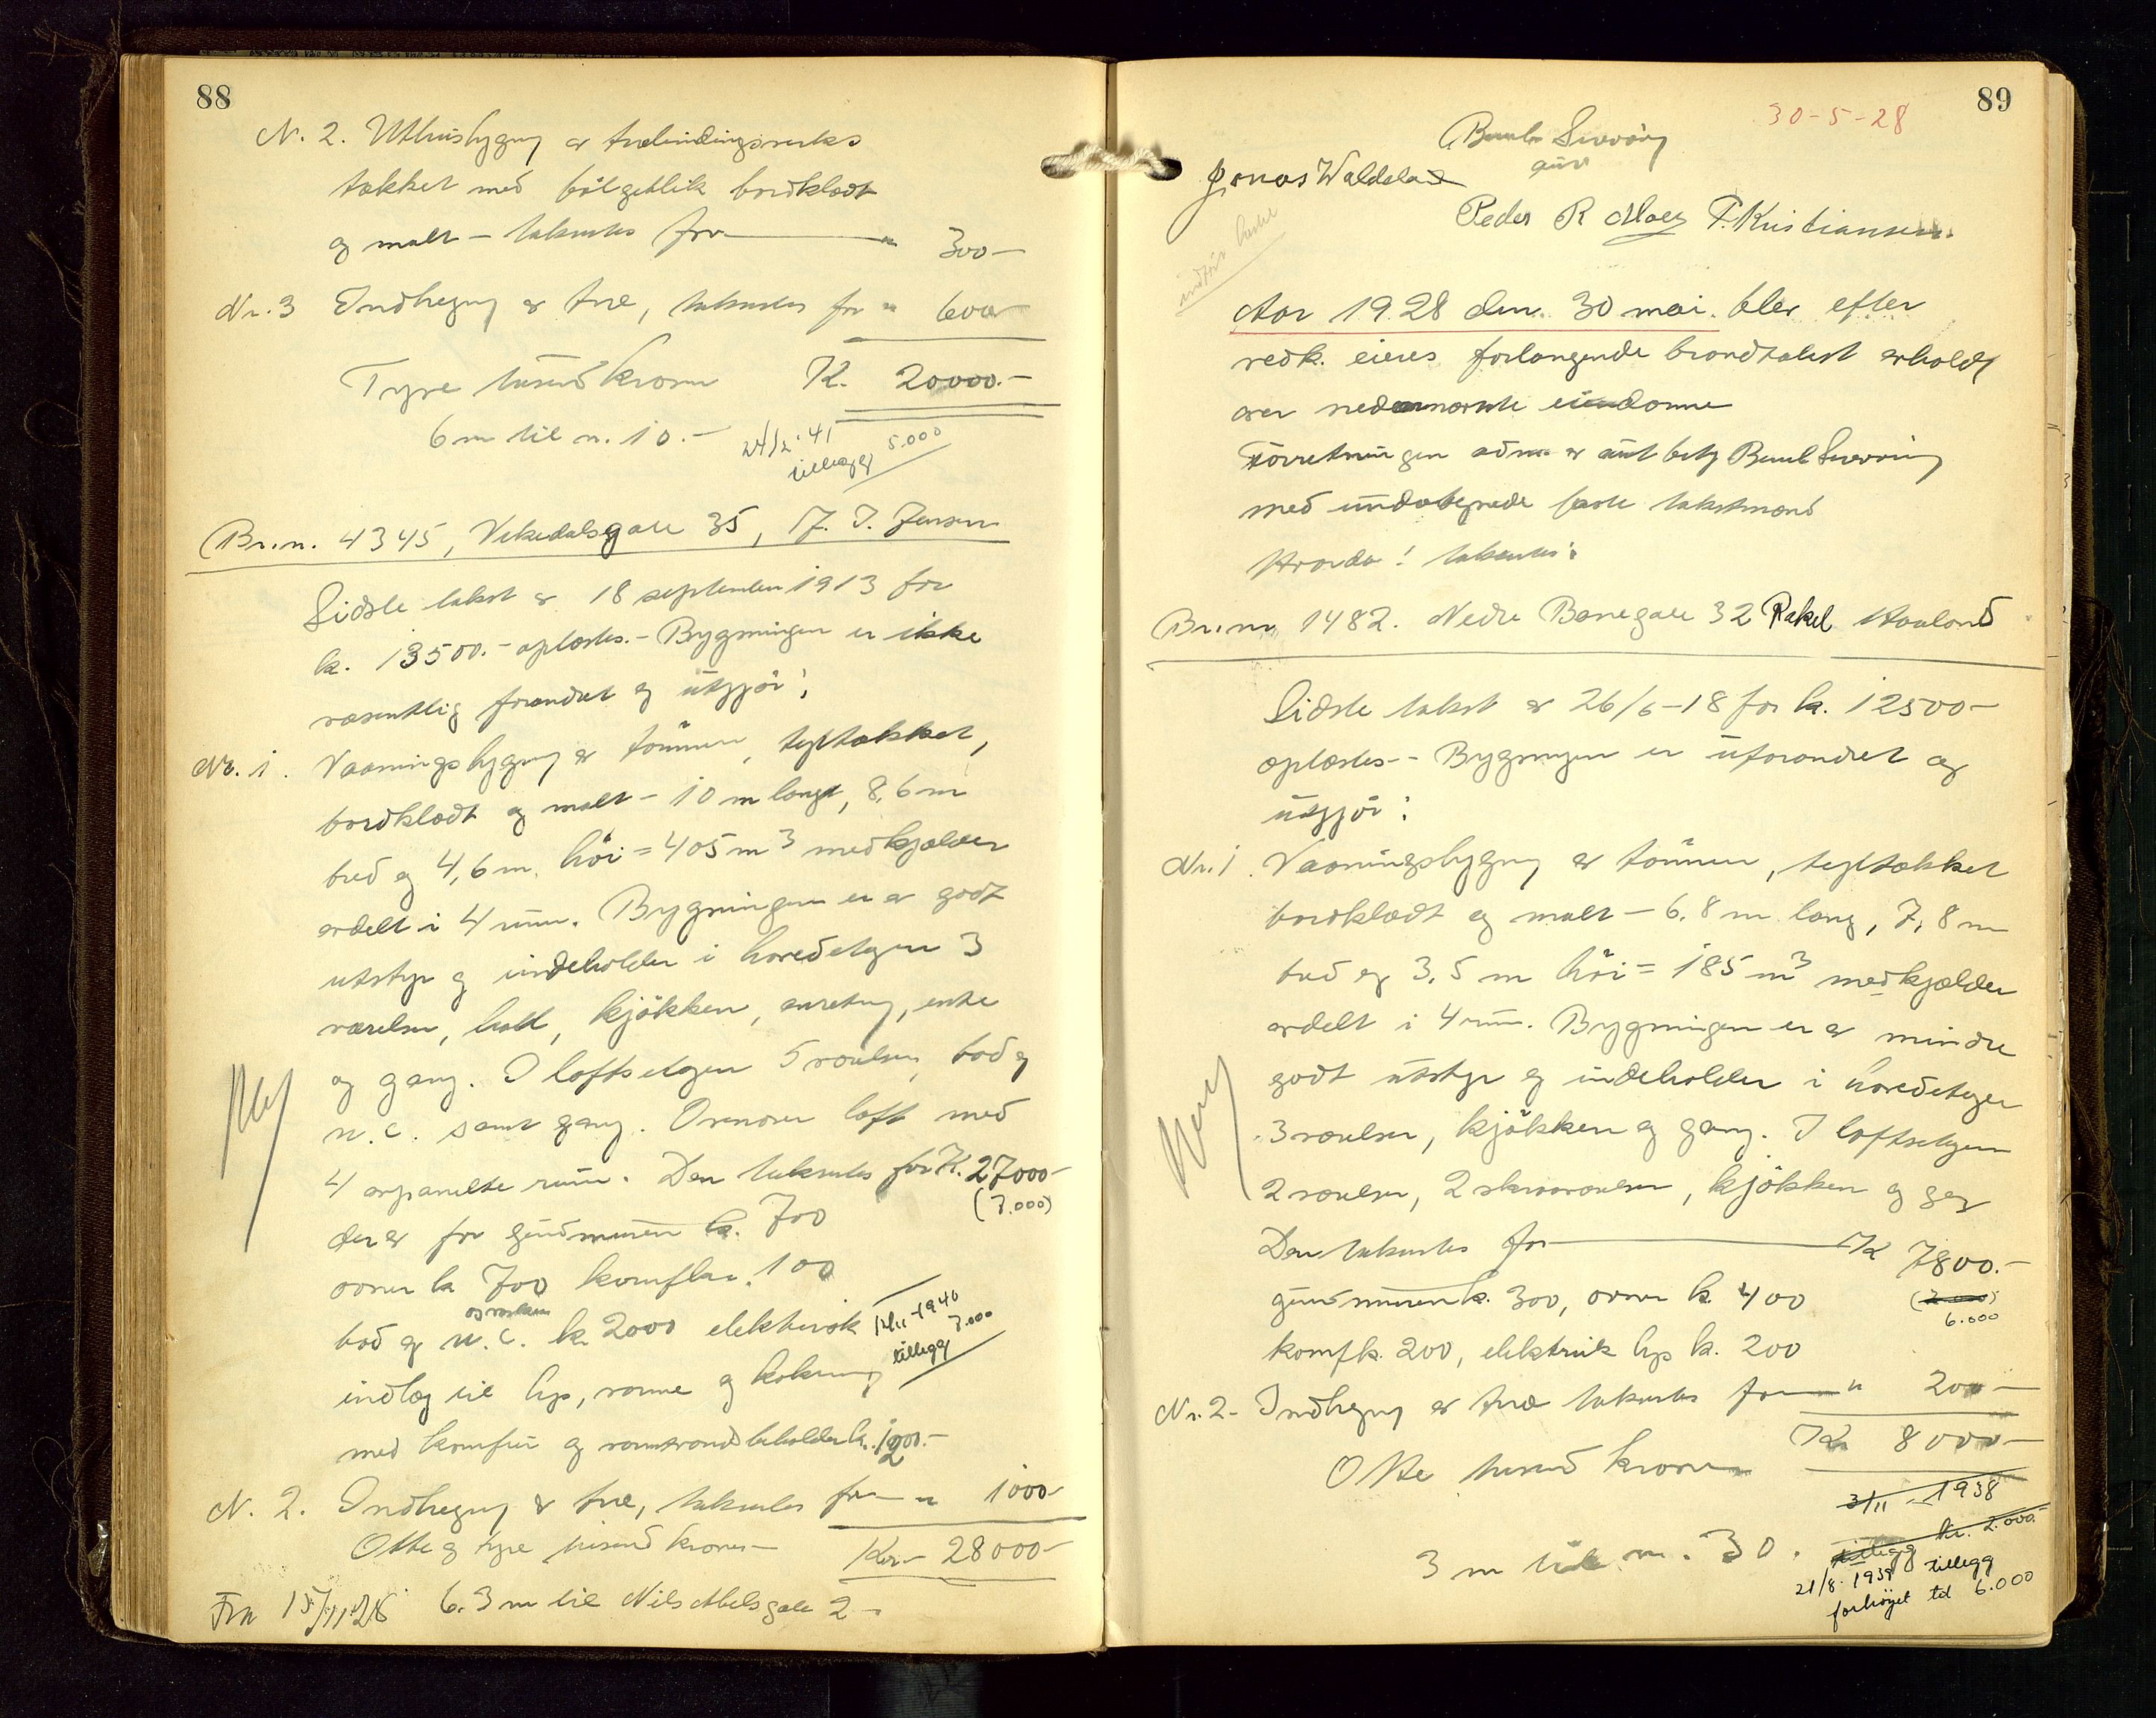 88
N. 2. Uthusbygng av træbindingsverks
takket med bölgeblik bordklædt
og malt – taksertes for — " 300 –
Nr. 3 Indhegng av træ, taksertes for " 600
Tyve tusend kroner K. 20000.–
6 m til n. 10. –
24/2 '41
tillegg 5.000
Br.n. 4345, Vikedalsgate 35, J. Jensen
Sidste takst av 18 september 1913 for
k. 13500.– oplæstes.– Bygningen er ikke
væsentlig forandret og utgjör:
Nr. 1. Vaaningsbygng av tömmer, tegltækket,
bordklædt og malt – 10 m langt, 8,6 m
bred og 4,6 m. höi = 405 m3 med kjælder
avdelt i 4 rum. Bygningen er av godt
utstyr og indeholder i hovedetagen 3
værelser, hall, kjökken, anretng, entre
og gang. I loftsetagen 5 værelser, bad og
w.c. samt gang. Ovenover loft med
4 avpanelte rum. Den taksertes for K. 27000–
(7.000)
derav for grundmuren k. 700
ovner k 700 komfkr. 100
og vasker
bad og w.c. k. 2000 elektrisk
11/11–1940
tillegg 7.000
indlæg til lys, varme og kokning
med komfur og varmtvandsbeholder k. 1200.–
N. 2. Indhegng av træ, taksertes for – " 1000–
Otte og tyve tusend kroner – Kr.– 28000–
Fra 15/11.28 6.3 m til Nils Abelsgate 2 –
Ny
89
30-5-28
Jonas Waldeland
Peder R Moey P. Kristiansen
indför
Aar 1928 den 30 mai. blev efter
vedk. eieres forlangende brandtakst avholdt
over nedennævnte eiendomme
Forretningen adm. av aut bestyr
med undertegnede faste takstmænd
Hvorda! taksertes:
Br.nr 1482. Nedre Banegate 32 Rakel Haaland
Sidste takst av 26/6–18 for k. 12500–
oplæstes.– Bygningen er uforandret og
utgjör:
Nr. 1. Vaaningsbygng av tömmer, tegltækket
bordklædt og malt – 6.8 m lang, 7,8 m
bred og 3.5 m höi = 185 m3 med kjælder
avdelt i 4 rum. Bygningen er av mindre
godt utstyr og indeholder i hovedetagen
3 værelser, kjökken og gang. I loftsetagen
2 værelser, 2 skraaværelser, kjökken og gang
Den taksertes for — K 7800.–
grundmuren k. 300, ovner k. 400
(7.000)
6.000
komfk. 200, elektrisk lys k. 200
Nr. 2– Indhegng av træ taksertes for — " 200 –
Kr 8000–
Otte tusend kroner
3/11 – 1938
tillegg kr. 2.000.
3 m til n. 30.
21/8. 1939 tillegg
forhöyet til 6.000
Ny